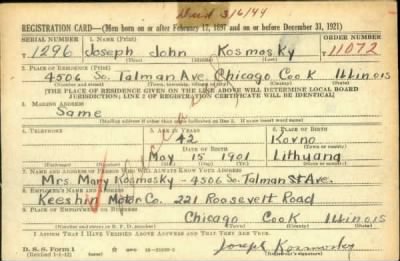 Died 3/6/44
REGISTRATION CARD—(Men born on or after February 17, 1897 and on or before December 31, 1921)
SERIAL NUMBER 1. NAME (Print) ORDER NUMBER
1296 Joseph John Kosmosky 11072
(First) (Middle) (Last)
2. PLACE OF RESIDENCE (Print)
4506 So. Talman Ave. Chicago Cook Illinois
(Number and street) (Town) (County) (State)
[THE PLACE OF RESIDENCE GIVEN ON THE LINE ABOVE WILL DETERMINE LOCAL BOARD
JURISDICTION; LINE 2 OF REGISTRATION CERTIFICATE WILL BE IDENTICAL]
3. MAILING ADDRESS
Same
[Mailing address if other than place indicated on line 2. If same insert word same]
4. TELEPHONE 5. AGE IN YEARS 6. PLACE OF BIRTH
42 Kovno
DATE OF BIRTH
May 15 1901 Lithuana
(Exchange) (Number) (Mo.) (Day) (Yr.) (State or country)
7. NAME AND ADDRESS OF PERSON WHO WILL ALWAYS KNOW YOUR ADDRESS
Mrs. Mary Kosmosky - 4506 So. Talman St Ave.
8. EMPLOYER'S NAME AND ADDRESS
Keeshin Motor Co. 221 Roosevelt Road
9. PLACE OF EMPLOYMENT OR BUSINESS
Chicago Cook Illinois
(Number and street or R. F. D. number) (Town) (County) (State)
I AFFIRM THAT I HAVE VERIFIED ABOVE ANSWERS AND THAT THEY ARE TRUE.
D. S. S. Form 1
(Revised 1-1-42) (over)
Joseph Kosmosky